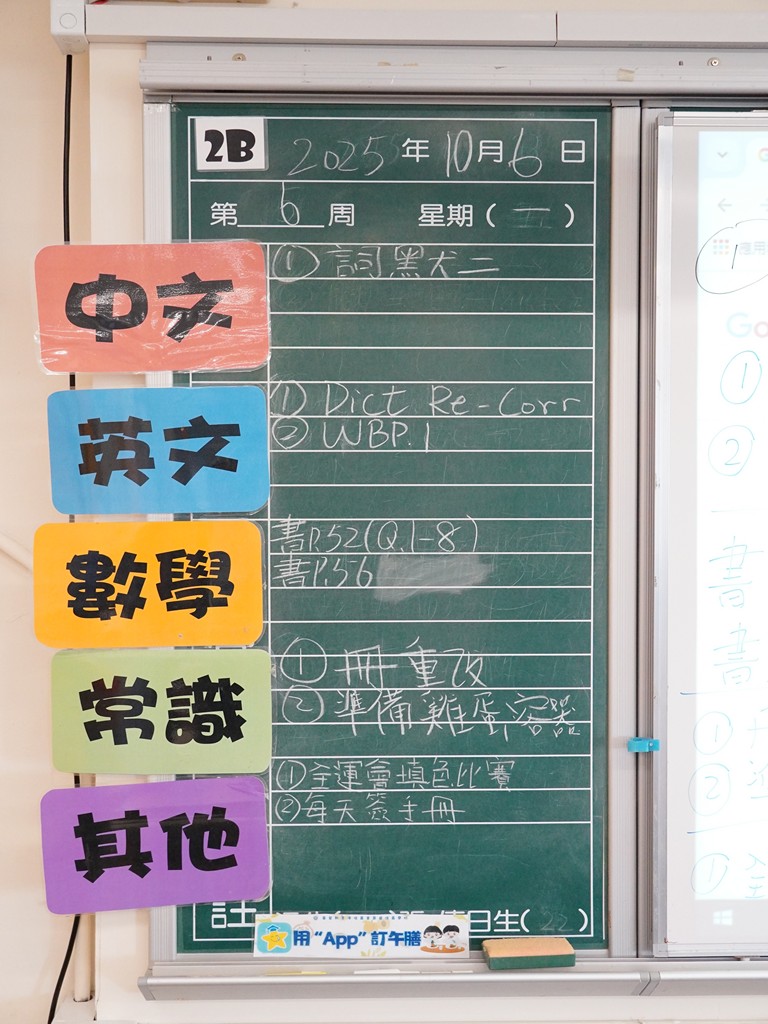 2B 2025年10月6日
第 6 周 星期( )
中文
① 詞黑犬二
英文
① Dict Re-Corr
② WBP.1
數學
書P.52(Q.1-8)
書P.56
常識
① 冊重改
② 準備雞蛋容器
其他
①全運會填色比賽
②每天簽手冊
註 值日生(22)
用“App”訂午膳
Go
①
①
②
書
書
①
②
① 全